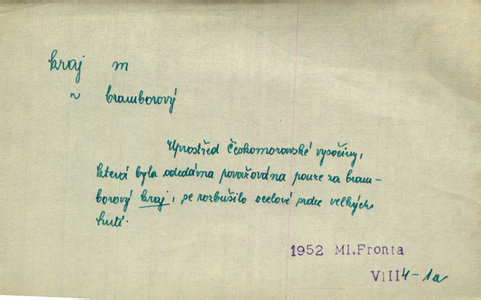 kraj m
~ bramborový
Uprostřed Českomoravské vysočiny,
která byla odedávna považována pouze za bram-
borový kraj, se rozbušilo ocelové srdce velkých
hutí.
1952 Ml.Fronta
VIII4-1a